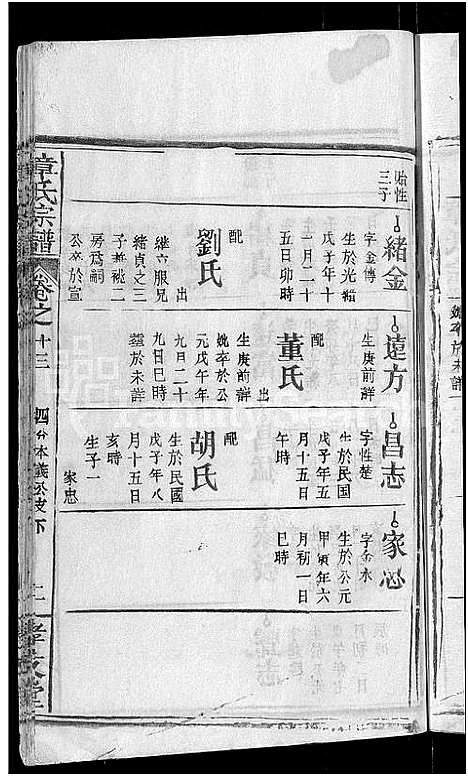 始性
三子
緒金
字金傅
生於光緒
戊子年十
一月二十
五日卯時
配
劉氏
出
繼立服兄
緒貞之三
子兼祧二
房為嗣
公卒於宣
遠方
生庚前詳
配
董氏
出
生庚前詳
娩卒於公
元戊午年
九月二十
九日巳時
塟於未詳
昌志
字性楚
生於民国
戊子年五
月十五日
午時
配
胡氏
生於民國
戊子年八
月十五日
亥時
生子一
家忠
家忠
字金水
生於公元
甲寅年六
月初一日
巳時
章氏宗譜
卷之十三
四分林義公支下
孝友堂